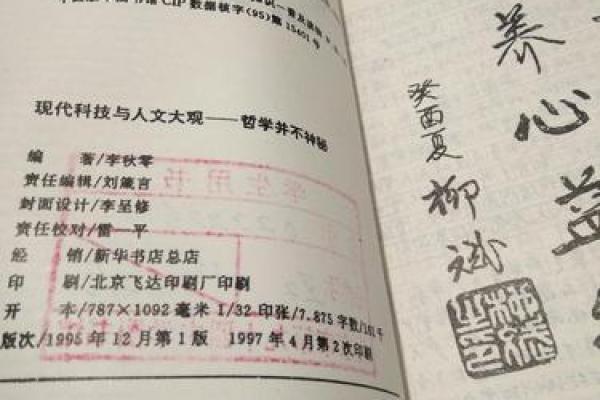 中国版本图书馆CIP数据核字(95)第15401号
现代科技与人文大观——哲学并不神秘
编 著/李秋零
责任编辑/刘箴言
封面设计/李呈修
责任校对/雷一平
经 销/新华书店总店
印 刷/北京飞达印刷厂印刷
开 本/787×1092毫米 1/32 印张/7.875 字数/161千
版次/1995年12月第1版 1997年4月第2次印刷
学生用书
养心益
癸酉夏
柳斌